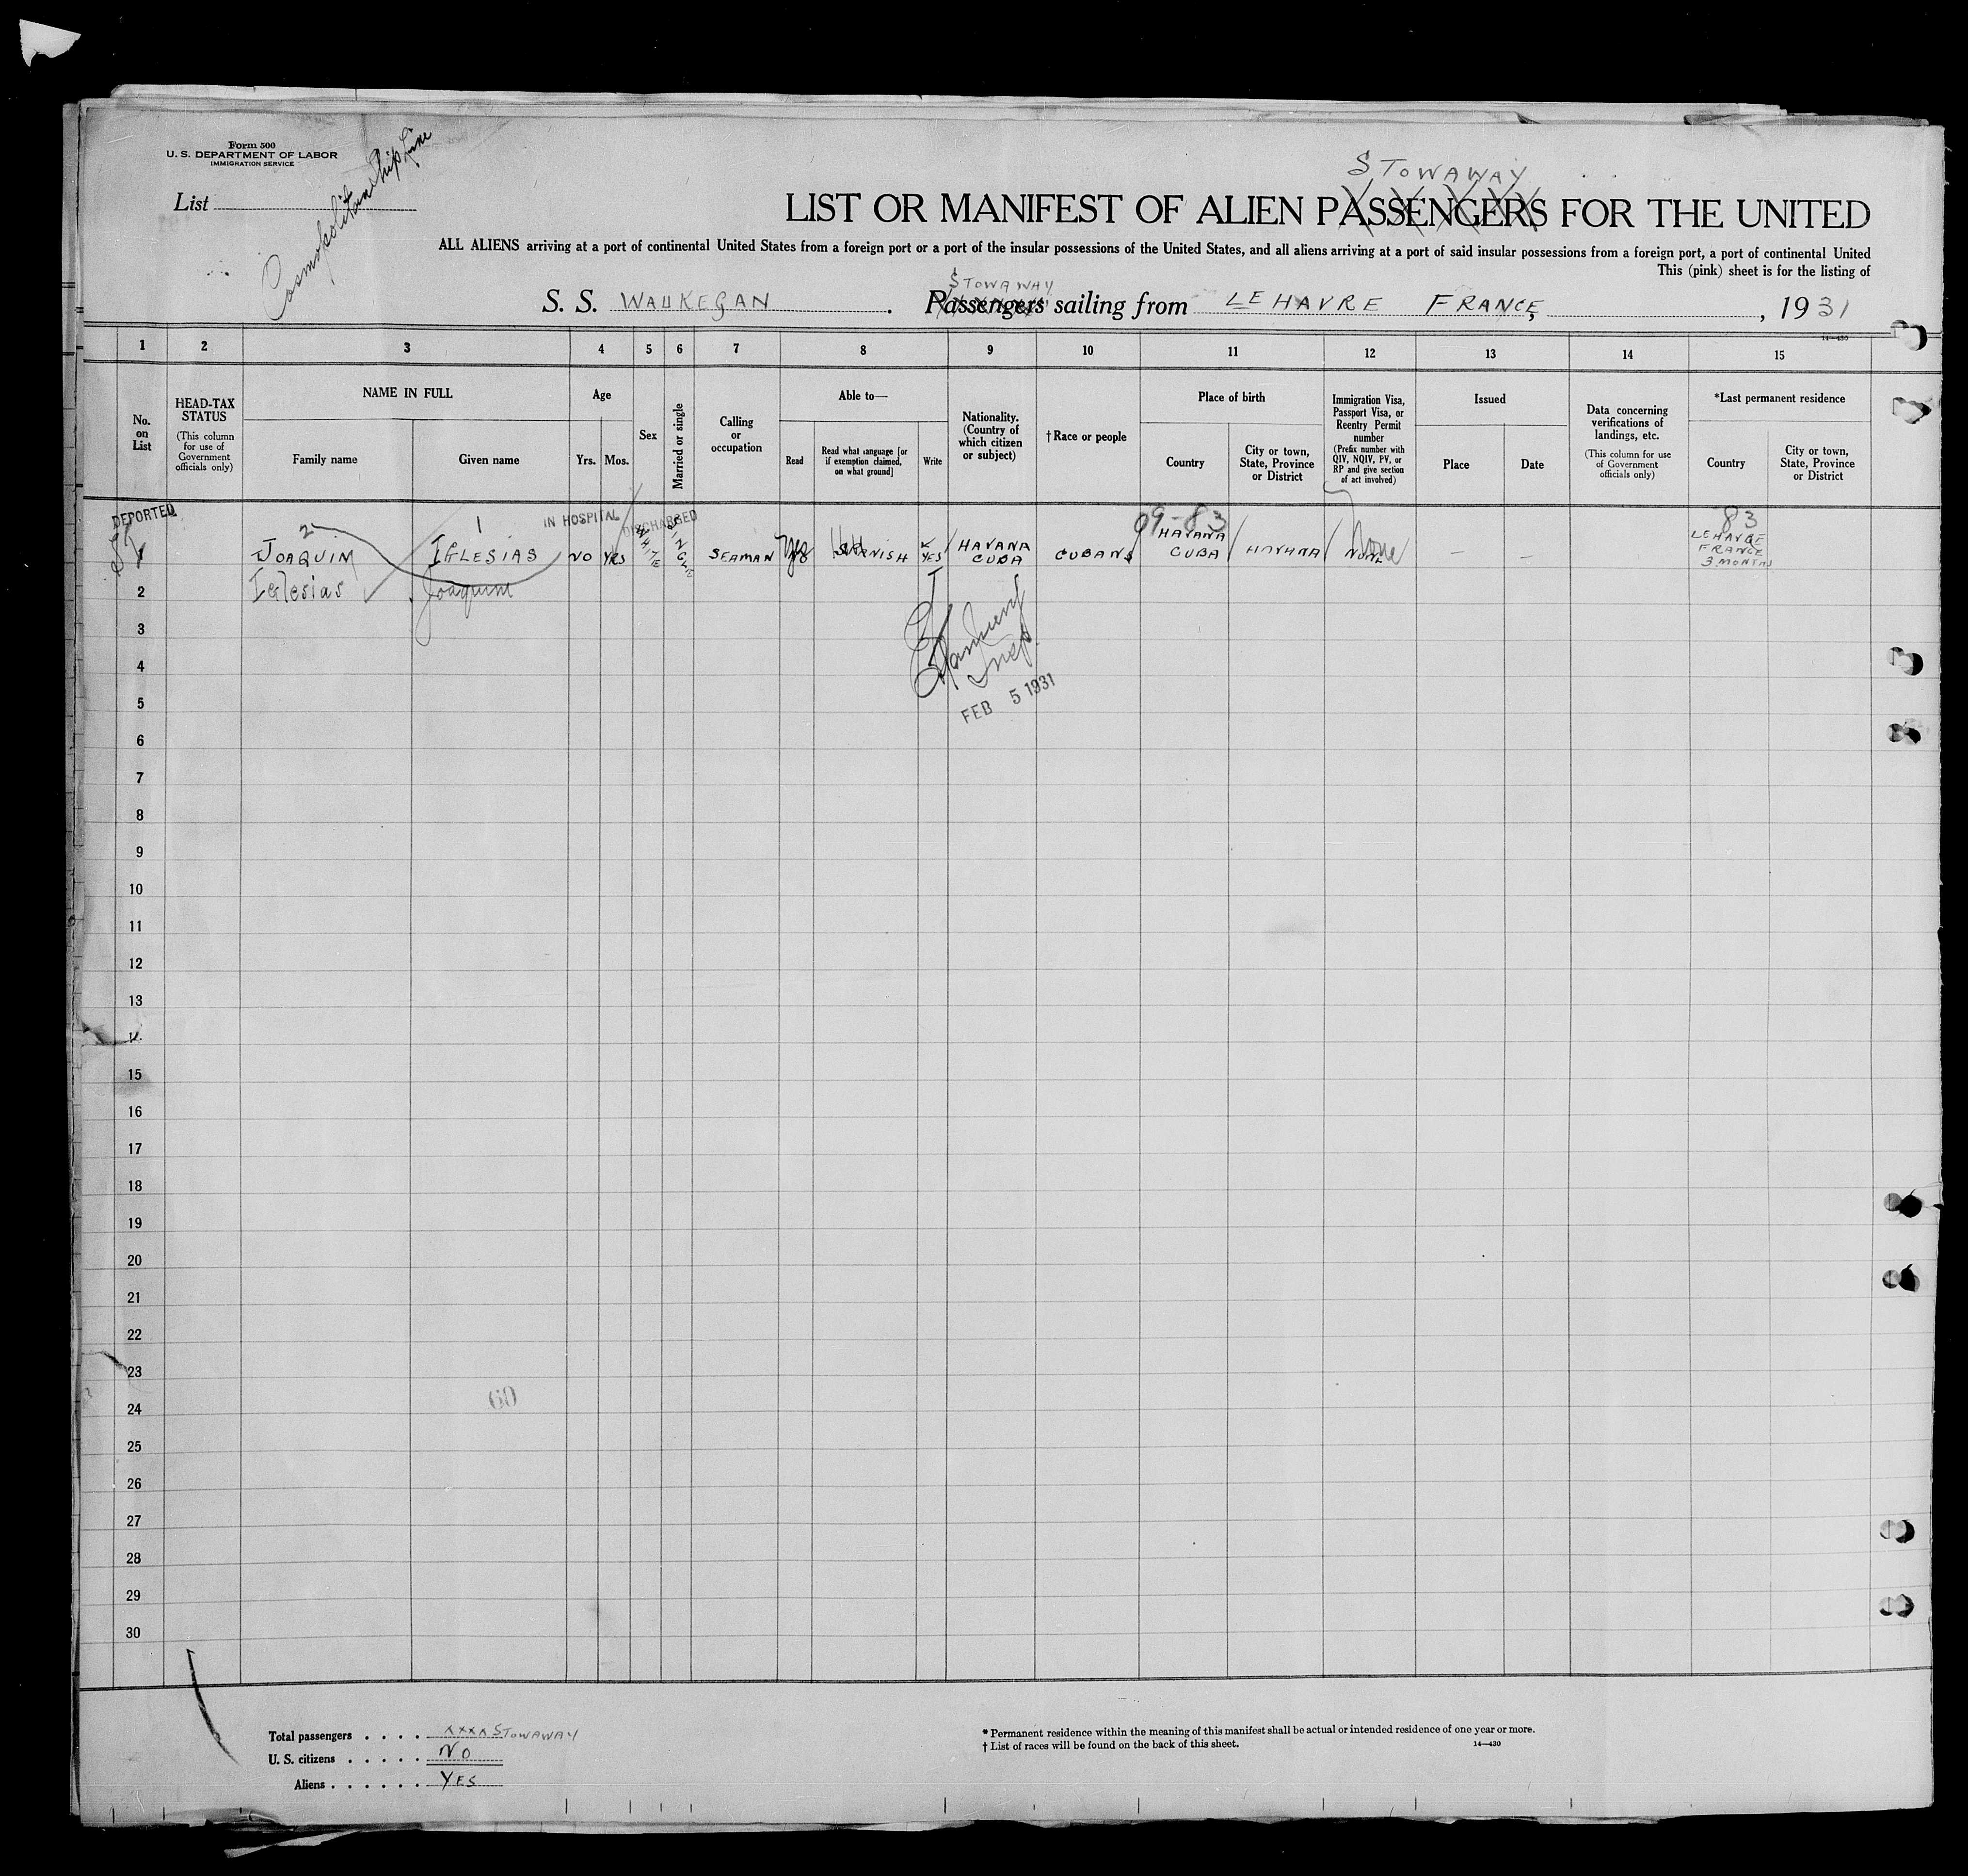 Form 500
U. S. DEPARTMENT OF LABOR
IMMIGRATION SERVICE
List
Cosmopolitan Ship Line
STOWAWAY
LIST OR MANIFEST OF ALIEN PASSENGERS FOR THE UNITED
ALL ALIENS arriving at a port of continental United States from a foreign port or a port of the insular possessions of the United States, and all aliens arriving at a port of said insular possessions from a foreign port, a port of continental United
This (pink) sheet is for the listing of
STOWAWAY
S. S. WAUKEGAN . Passengers sailing from LE HAVRE FRANCE, , 1931
14—430
1 2 3 4 5 6 7 8 9 10 11 12 13 14 15
No. on List
HEAD-TAX STATUS
(This column for use of Government officials only)
NAME IN FULL
Family name
Given name
Age
Yrs.
Mos.
Sex
Married or single
Calling or occupation
Able to—
Read
Read what language [or if exemption claimed, on what ground]
Write
Nationality. (Country of which citizen or subject)
† Race or people
Place of birth
Country
City or town, State, Province or District
Immigration Visa, Passport Visa, or Reentry Permit number
(Prefix number with QIV, NQIV, PV, or RP and give section of act involved)
Issued
Place
Date
Data concerning verifications of landings, etc.
(This column for use of Government officials only)
*Last permanent residence
Country
City or town, State, Province or District
DEPORTED
2
1
IN HOSPITAL
DISCHARGED
09-83
83
1 JOAQUIM IGLESIAS NO YRS WHITE SINGLE SEAMAN Yes SPANISH YES HAVANA CUBA CUBANS HAVANA CUBA HAVANA NONE None — — LEHAVRE FRANCE 3 MONTHS
2 Iglesias Joaquim
3
4
Insp.
5
FEB 5 1931
6
7
8
9
10
11
12
13
14
15
16
17
18
19
20
21
22
23
60
24
25
26
27
28
29
30
Total passengers . . . . xxxx STOWAWAY
U. S. citizens . . . . . NO
Aliens . . . . . . YES
* Permanent residence within the meaning of this manifest shall be actual or intended residence of one year or more.
† List of races will be found on the back of this sheet.
14—430